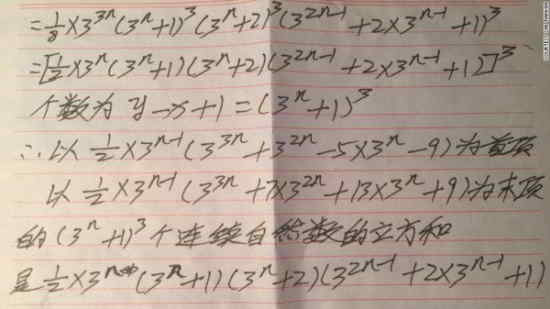 =1/8×3^{3n}(3^n+1)^3(3^n+2)^3(3^{2n-1}+2×3^{n-1}+1)^3
=[1/2×3^n(3^n+1)(3^n+2)(3^{2n-1}+2×3^{n-1}+1)]^3
个数为 y-x+1=(3^n+1)^3
∴以 1/2×3^{n-1}(3^{3n}+3^{2n}-5×3^n-9)为首项
以 1/2×3^{n-1}(3^{3n}+7×3^{2n}+13×3^n+9)为末项
的(3^n+1)^3个连续自然数的立方和
是1/2×3^n(3^n+1)(3^n+2)(3^{2n-1}+2×3^{n-1}+1)